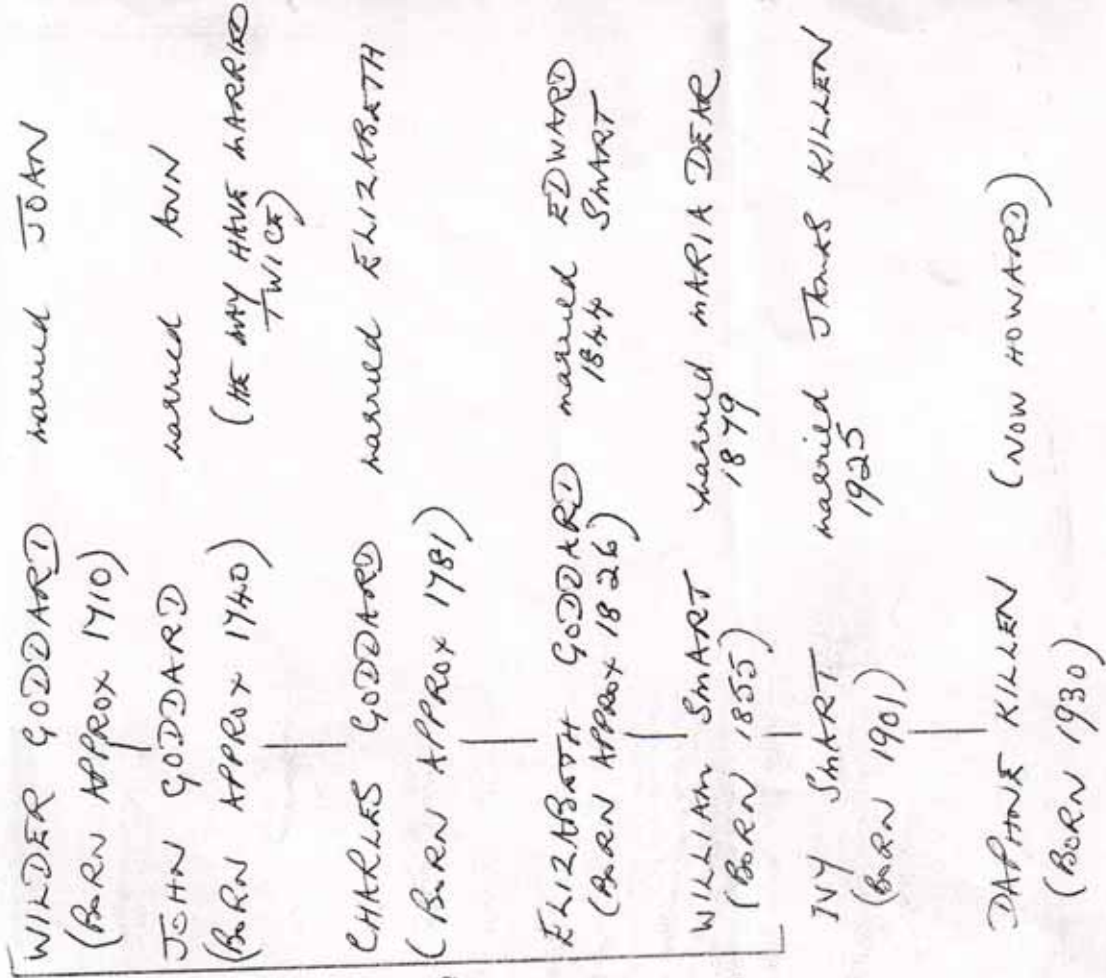 WILDER GODDARD married JOAN
(BORN APPROX 1710)
JOHN GODDARD married ANN
(BORN APPROX 1740) (HE MAY HAVE MARRIED
TWICE)
CHARLES GODDARD married ELIZABETH
(BORN APPROX 1781)
ELIZABETH GODDARD married EDWARD
(BORN APPROX 1826) 1844 SMART
WILLIAM SMART married MARIA DEAR
(BORN 1855) 1879
IVY SMART married JAMES KILLEN
(BORN 1901) 1925
DAPHNE KILLEN (NOW HOWARD)
(BORN 1930)